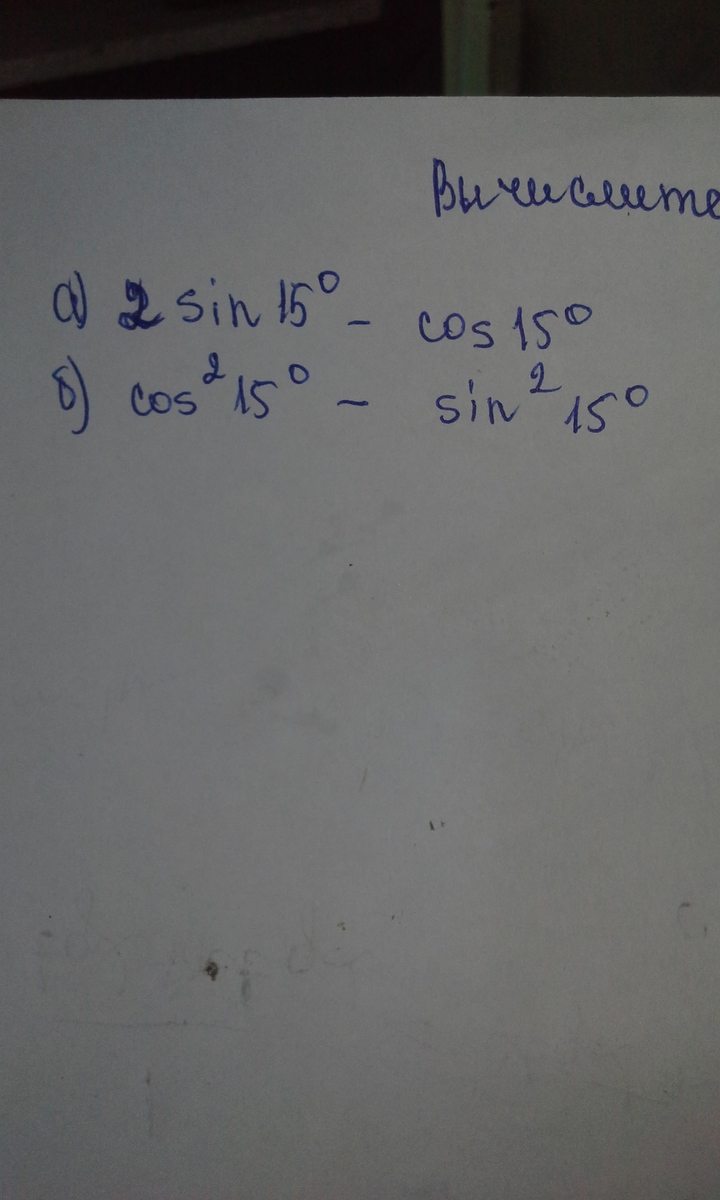 Вычислите
а) 2 sin 15° - cos 15°
б) cos² 15° - sin² 15°